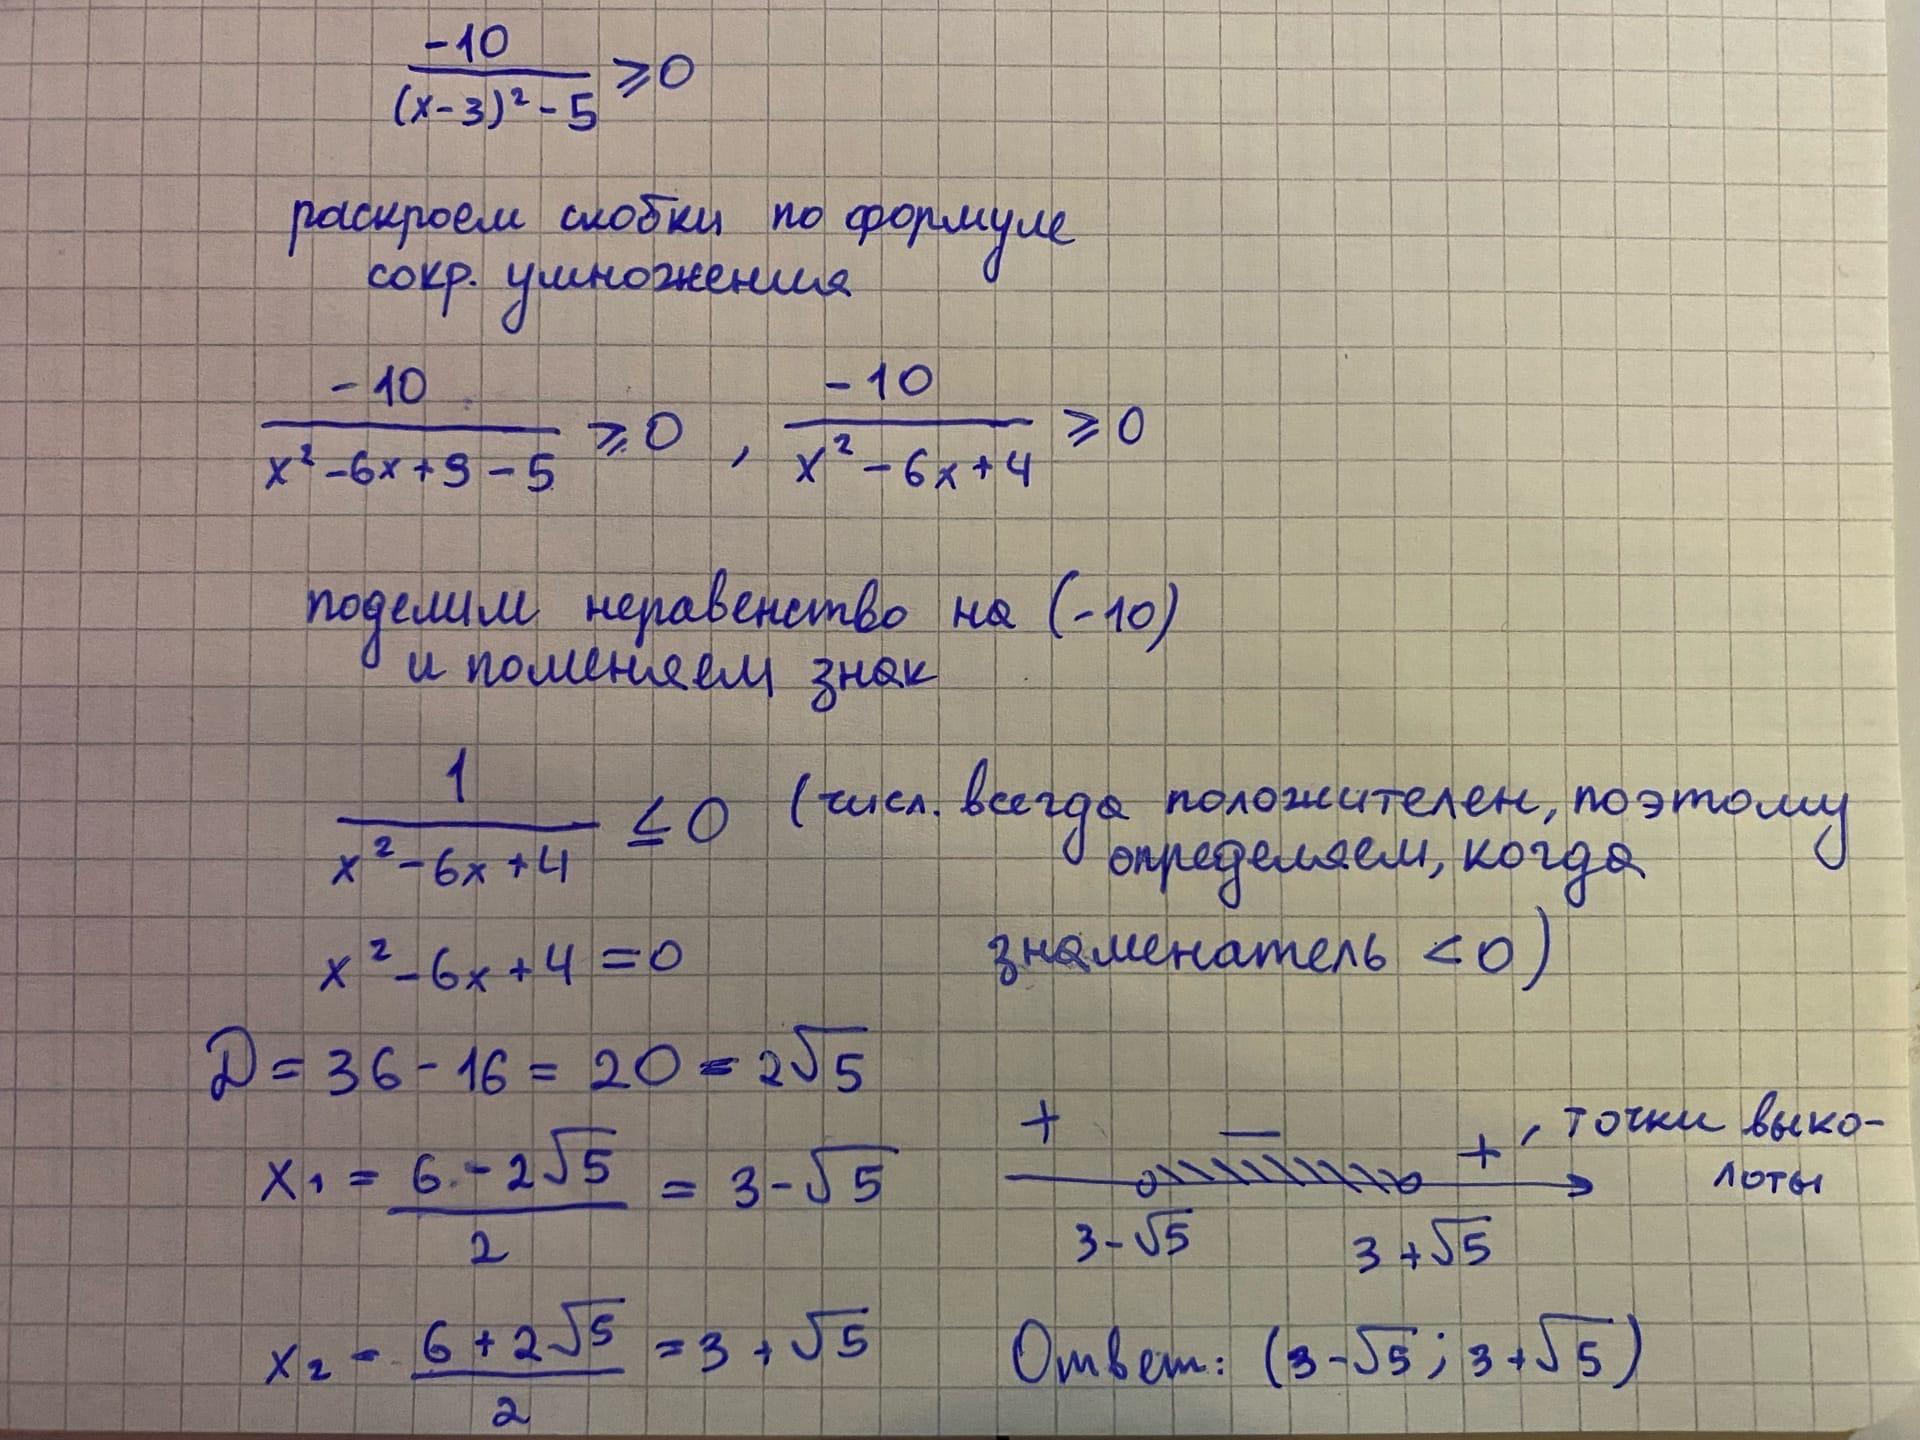 -10
(x-3)² - 5 ⩾0
раскроем скобки по формуле
сокр. умножения
-10 / (x²-6x+9-5) ⩾0 , -10 / (x²-6x+4) ⩾0
поделим неравенство на (-10)
и поменяем знак
1 / (x²-6x+4) ≤0 (числ. всегда положителен, поэтому
определяем, когда
x²-6x+4=0 знаменатель <0)
Д = 36-16 = 20 = 2√5
+ − + , точки выко-
лоты
x₁ = (6-2√5) / 2 = 3-√5
3-√5 3+√5
x₂ = (6+2√5) / 2 = 3+√5
Ответ: (3-√5; 3+√5)